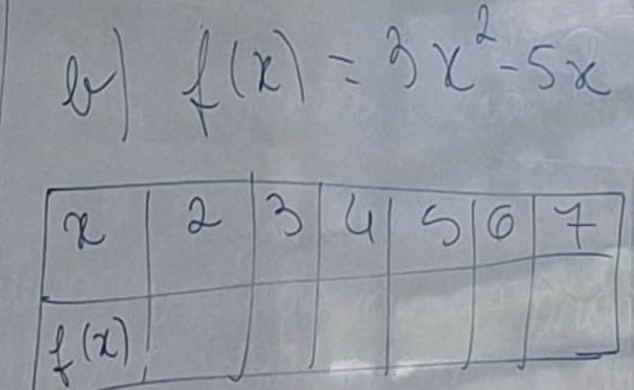 b) f(x) = 3x² - 5x
x 2 3 4 5 6 7
f(x)